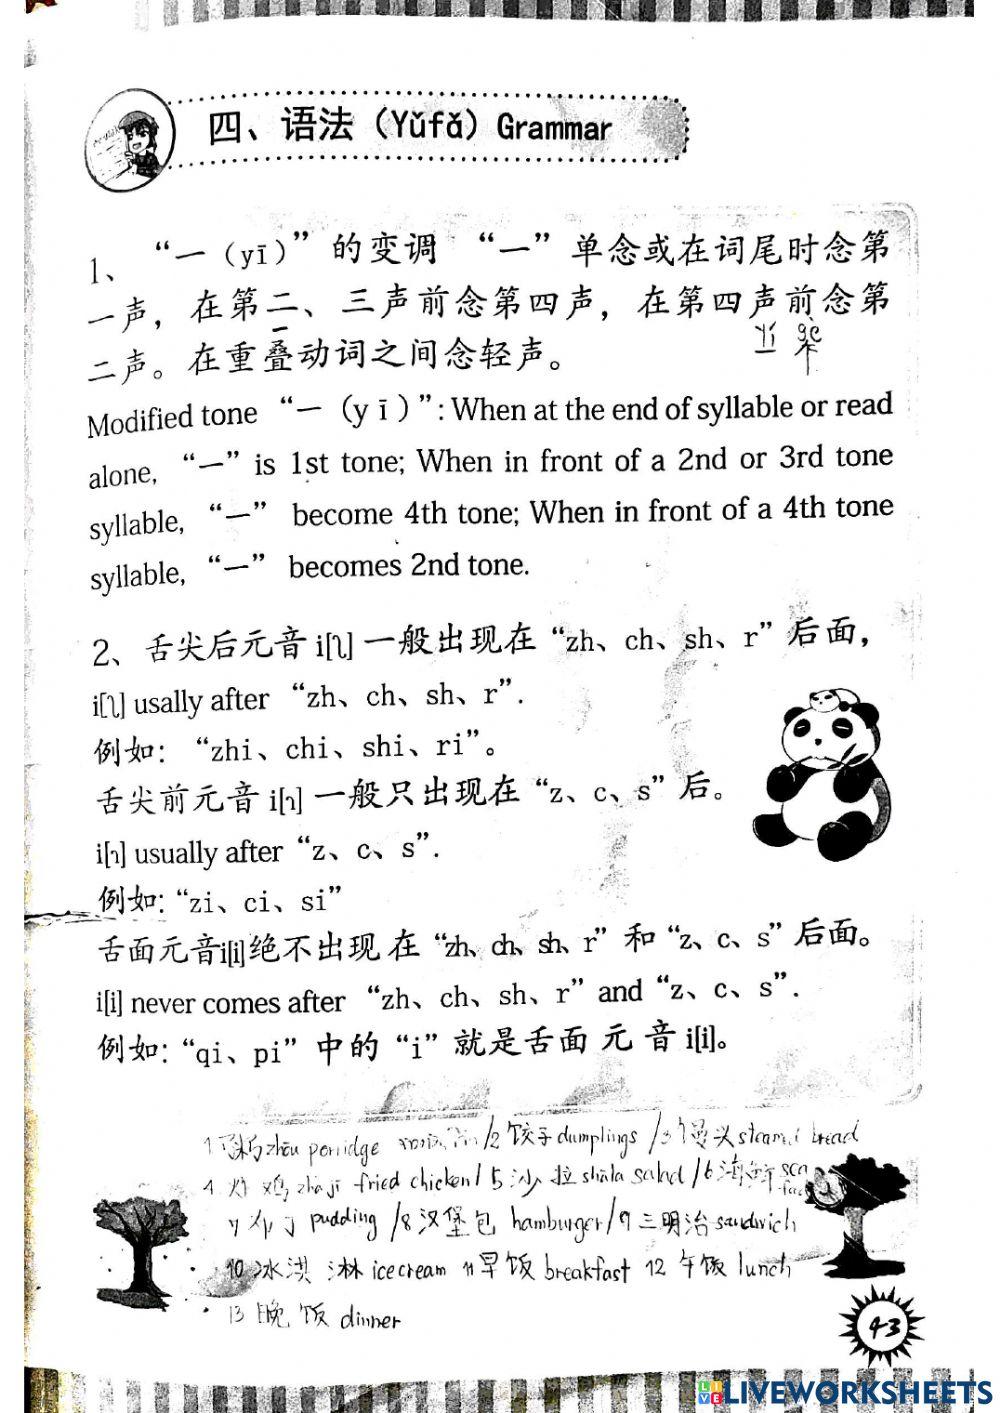 四、语法（Yǔfǎ）Grammar
1、“一（yī）”的变调 “一”单念或在词尾时念第
一声，在第二、三声前念第四声，在第四声前念第
yí gè
一 个
二声。在重叠动词之间念轻声。
Modified tone “一（yī）”: When at the end of syllable or read
alone, “一” is 1st tone; When in front of a 2nd or 3rd tone
syllable, “一” become 4th tone; When in front of a 4th tone
syllable, “一” becomes 2nd tone.
2、舌尖后元音 i[ʅ] 一般出现在“zh、ch、sh、r”后面，
i[ʅ] usally after “zh、ch、sh、r”.
例如：“zhi、chi、shi、ri”。
舌尖前元音 i[ɿ] 一般只出现在“z、c、s”后。
i[ɿ] usually after “z、c、s”.
例如：“zi、ci、si”
舌面元音i[i]绝不出现在“zh、ch、sh、r”和“z、c、s”后面。
i[i] never comes after “zh、ch、sh、r” and “z、c、s”.
例如：“qi、pi”中的“i”就是舌面元音i[i]。
1 粥 zhōu porridge /2 饺子 dumplings /3 馒头 steamed bread
4 炸鸡 zhájī fried chicken / 5 沙拉 shāla salad /6 海鲜
7 布丁 pudding /8 汉堡包 hamburger /9 三明治 sandwich
10 冰淇淋 ice cream 11 早饭 breakfast 12 午饭 lunch
13 晚饭 dinner
43
LIVEWORKSHEETS